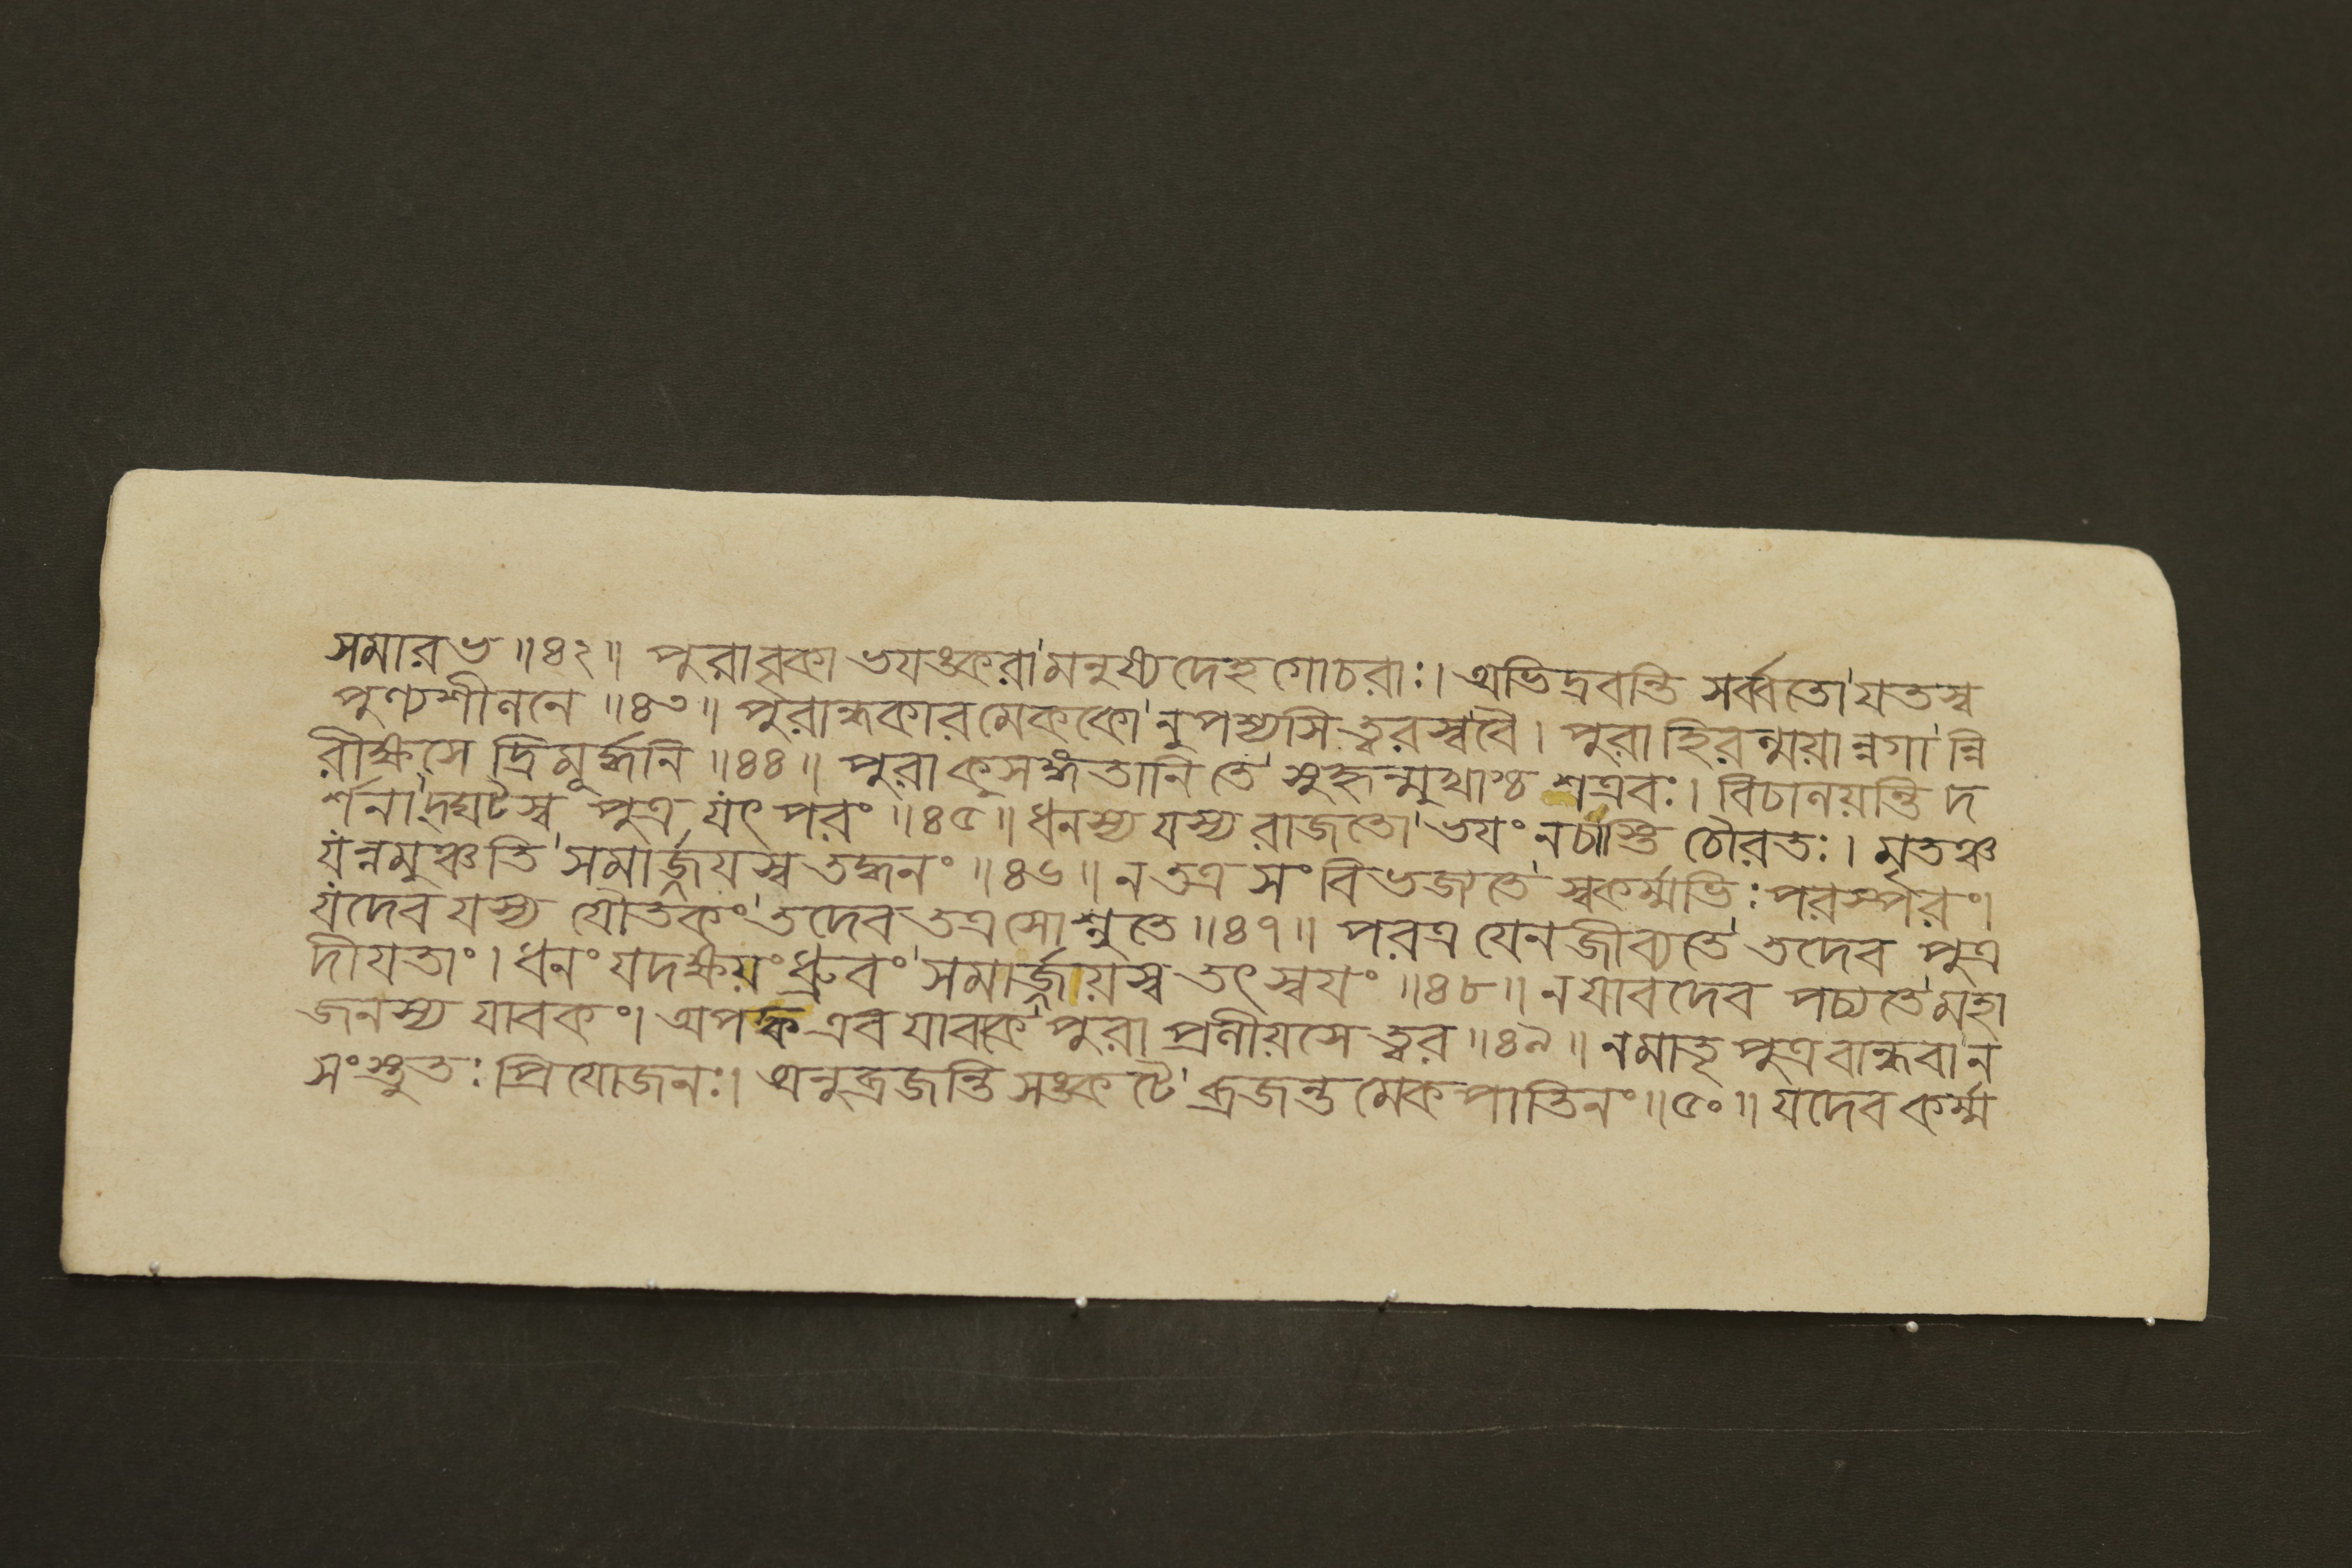 সমারভ ॥৪২॥ পুরাবৃকা ভযঙ্করা মনুষ্যদেহগোচরাঃ। অভিদ্রবন্তি সর্ব্বতো যতস্ব
পুণ্যশীলনে ॥৪৩॥ পুরান্ধকারমেককোনুপশ্যসি ত্বরস্ববৈ। পুরা হিরন্ময়ান্নগান্নি
রীক্ষসে দ্রিমূর্দ্ধনি ॥৪৪॥ পুরা কুসঙ্গতানি তে সুহৃন্মুখাশ্চ শত্রবঃ। বিচালয়ন্তি দ
র্শনাদ্ঘটস্ব পুত্র যৎ পরং ॥৪৫॥ ধনস্য যস্য রাজতো ভযং নচাস্তি চৌরতঃ। মৃতঞ্চ
যন্নমুঞ্চতি সমার্জ্জয়স্ব তদ্ধনং ॥৪৬॥ ন তত্র সংবিভজ্যতে স্বকর্ম্মভিঃ পরস্পরং।
যদেব যস্য যৌতকং তদেব তত্র সোশ্নুতে ॥৪৭॥ পরত্র যেন জীব্যতে তদেব পুত্র
দীযতাং। ধনং যদক্ষয়ং ধ্রুবং সমার্জ্জয়স্ব তৎ স্বযং ॥৪৮॥ ন যাবদেব পচ্যতে মহা
জনস্য যাবকং। অপক্ব এব যাবকে পুরা প্রলীয়সে ত্বর ॥৪৯॥ নমাতৃ পুত্রবান্ধবা ন
সংস্তুতঃ প্রিযোজনঃ। অনুব্রজন্তি সঙ্কটে ব্রজন্তমেকপাতিনং ॥৫০॥ যদেব কর্ম্ম